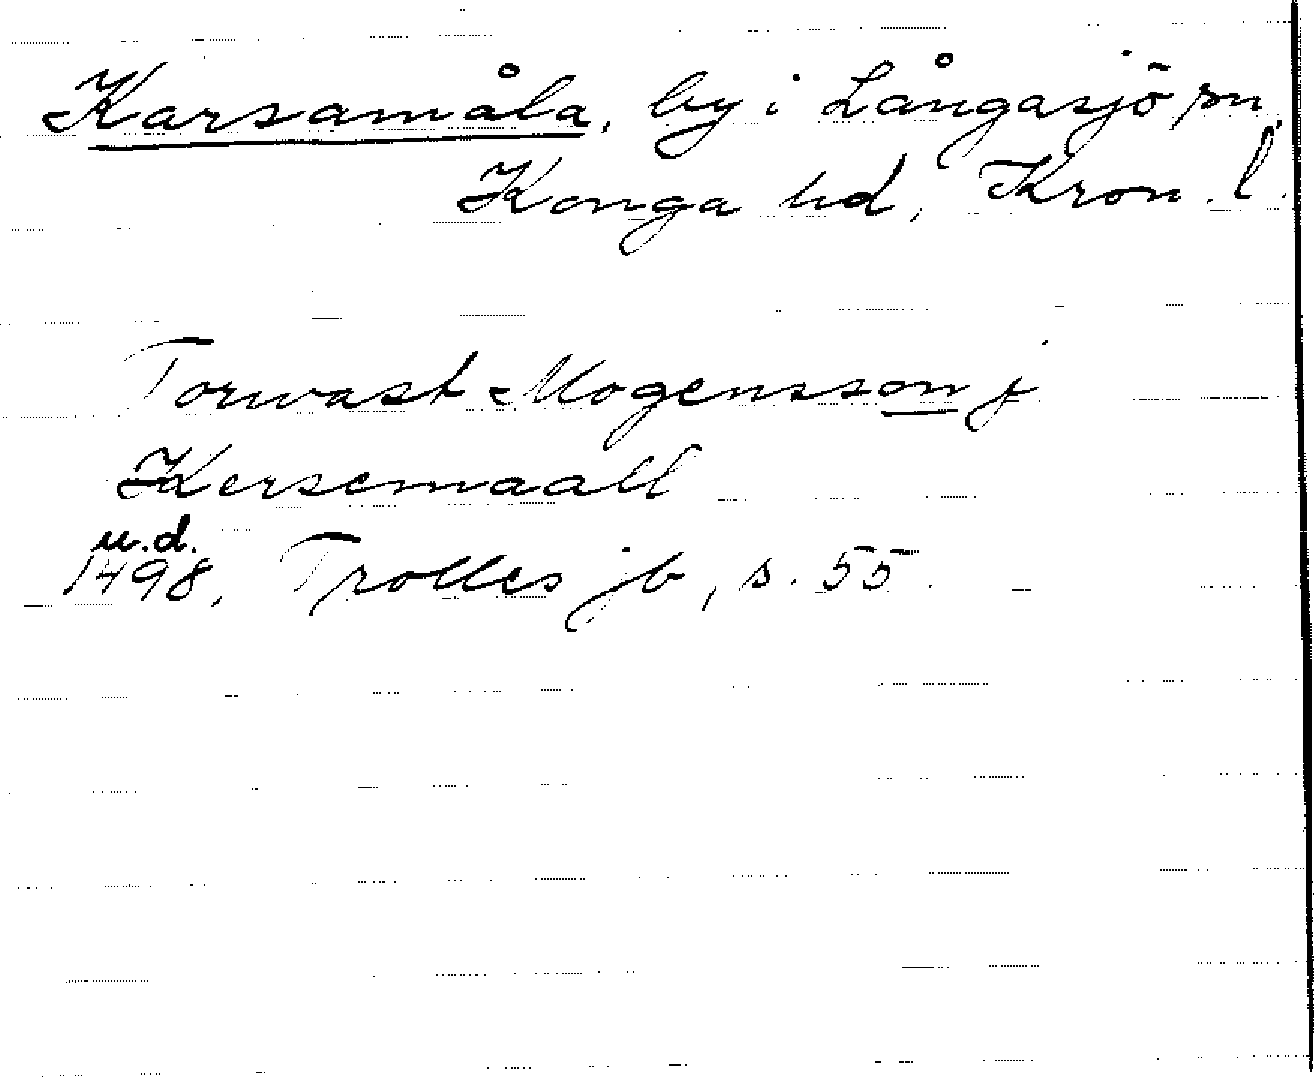 Karsamåla, by i Långasjö sn,
Konga hd, Kron. l.
Torwast Mogensson j
Kersemaall
u.d.
1498, Trolles jb, s. 55.